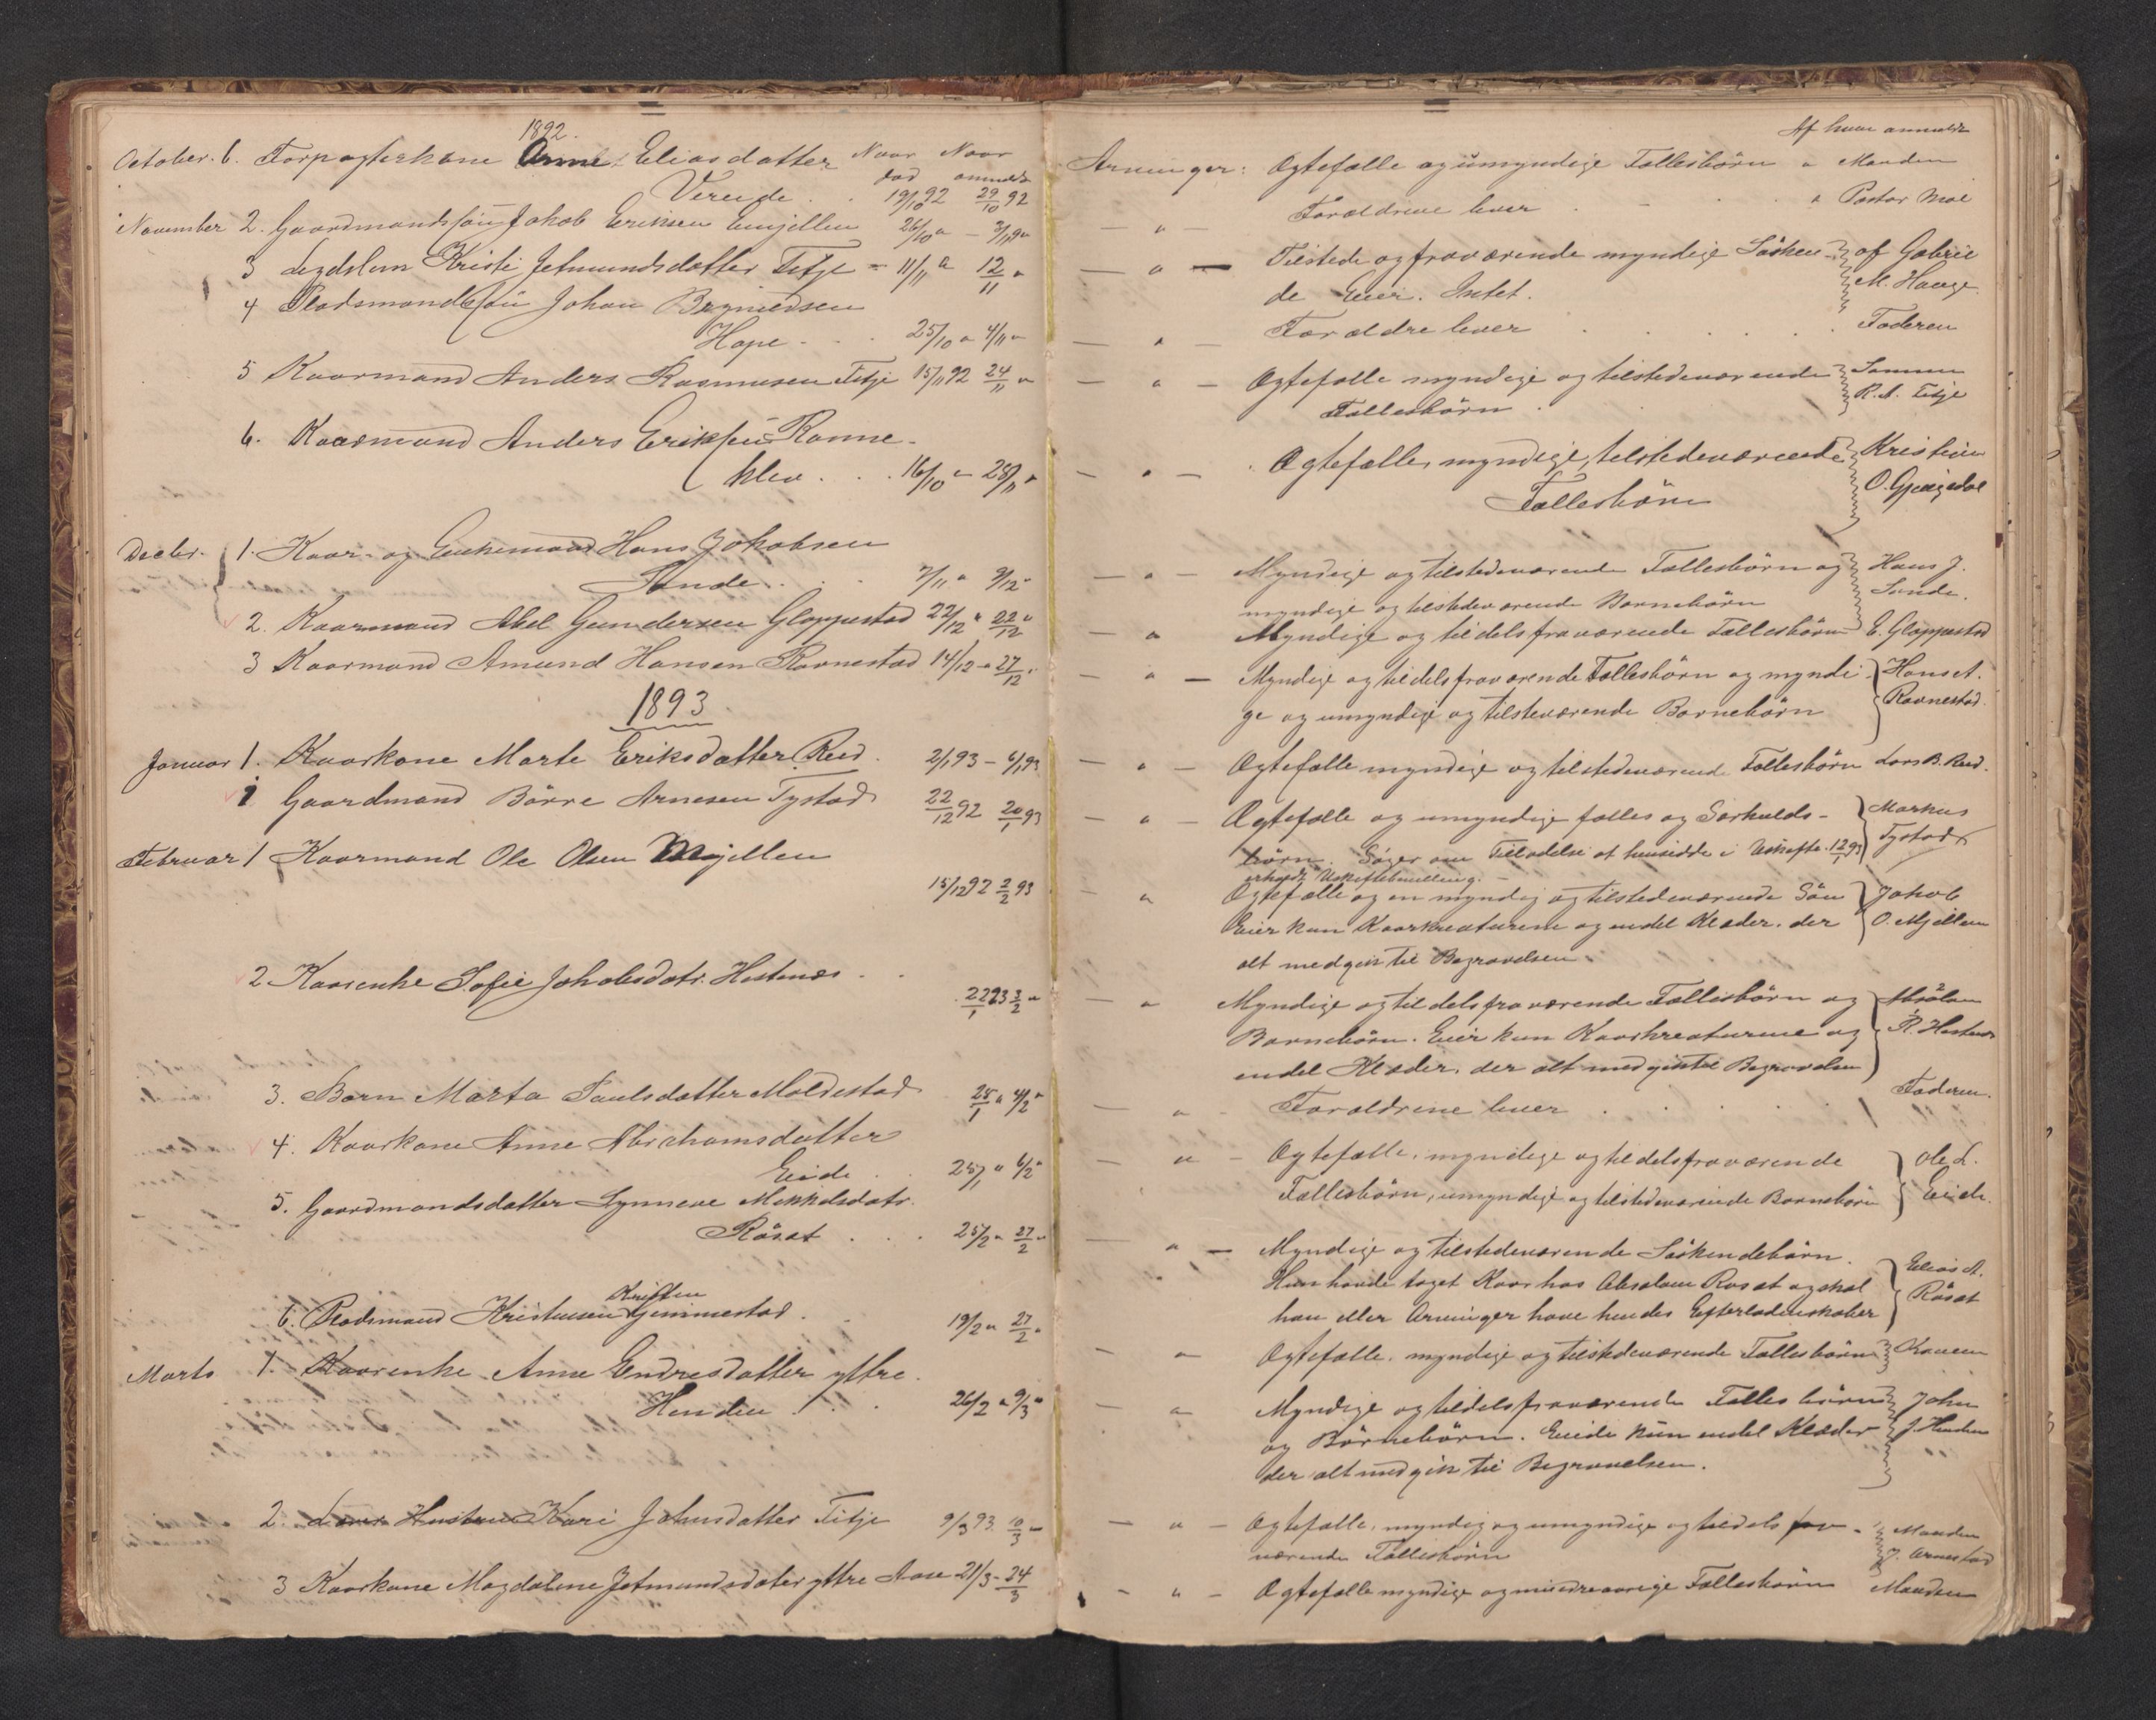 1892.
October. 6. Forpagterkone Anne Eliasdatter Naar Naar
død anmeldt
Vereide . . 19/10 92 29/10 92
November 2. Gaardmandssøn Jakob Eriksen Emjellen 26/10 " –
3 Lægdslem Kristi Jetmundsdatter Fitje – 11/11 " 12/11 "
4 Pladsmandssøn Johan
Hope . . . 25/10 " 4/11 "
5 Kaarmand Anders Rasmusen Fitje 15/11 92 24/11 "
6. Kaarmand Anders Eriksøn Ronne-
klev . . . 16/10 " 28/11 "
Decbr. 1. Kaar- og Enkemand Hans Jakobsen
Sande . . . 7/11 " 9/12 "
2. Kaarmand Abel Gundersen Gloppestad 22/12 " 22/12 "
3 Kaarmand Amund Hansen Ravnestad 14/12 " 27/12 "
1893
Januar 1. Kaarkone Marte Eriksdatter Reed . 2/1 93 – 6/1 93
1 Gaardmand Börre Arnesen Tystad 22/12 92 20/1 93
Februar 1 Kaarmand Ole Olsen Mjellem
15/12 92 2/2 93
2. Kaarenke Sofie Jakobsdatr. Hestenes . .
22/1 93 3/2 "
3. Barn Marta Paulsdatter Moldestad 28/1 " 4/2 "
4. Kaarkone Anne Abrahamsdatter
Eide . 25/1 " 6/2 "
5. Gaardmandsdatter Synneve Mikkelsdatr.
Rösæt . . . 25/2 " 27/2 "
Kristen
6. Pladsmand Kristensen Gimmestad . 19/2 " 27/2 "
Marts 1. Kaarenke Anne Endresdatter yttre
Henden . . . 26/2 " 9/3 "
2. Kari Johnsdatter Fitje 9/3 93. 10/3 "
3 Kaarkone Magdalene Jetmundsdatter yttre Aase 21/3 – 24/3
Af hvem anmeldt
Arvinger: Ægtefælle og umyndige Fællesbörn " Manden
– " – Forældrene lever . – . . " Pastor Moe
– " – Tilstede og fraværende myndige Sösken- af Gabriel
de Eier. Intet. M. Hauge.
– " – Forældre lever . . . . . Faderen
– " – Ægtefælle myndige og tilstedeværende Sønnen
Fællesbörn . R. A. Fitje
– " – Ægtefælle, myndige, tilstedeværende Kristian
Fællesbörn O.
– " – Myndige og tilstedeværende Fællesbörn og Hans J.
myndige og tilstedeværende Barnebörn Sande.
– " Myndige og tildels fraværende Fællesbörn E. Gloppestad
– " – Myndige og tildels fraværende Fællesbörn og myndi- Hans A.
ge og umyndige og tilsteværende Barnebörn Ravnestad.
– " – Ægtefælle myndige og tilstedeværende Fællesbörn Lars B. Reed.
– " – Ægtefælle og umyndige fælles og Særkulds- Markus
börn. Söger om Tilladelse at hensidde i Uskifte. 12/1 93 Tystad
erholdt Uskiftebevilling. –
– " Ægtefælle og en myndig og tilstedeværende Sön Jakob
Eier kun Kaarkreaturene og endel Klæder. der O. Mjellem
alt medgik til Begravelsen.
– " Myndige og tildels fraværende Fællesbörn og Absolon
Barnebörn. Eier kun Kaarkreaturene og R. Hestenes
endel Klæder, der alt medgik til Begravelsen
– " – Forældrene lever . . . . Faderen.
– " – Ægtefælle, myndige og tildels fraværende Ole L.
Fællesbörn, umyndige og tilstedeværende Barnebörn Eide.
– " – Myndige og tilstedeværende Söskendebörn. Elias A.
Hun havde taget Kaar hos Absalom Rosæt og skal Rösæt
han eller Arvinger have hendes Efterladenskaber
– " Ægtefælle. myndige og tilstedeværende Fællesbörn Konen
– " Myndige og tildels fraværende Fælles börn John
og Börnebörn. Eiede kun endel Klæder J. Henden
der alt medgik til Begravelsen.
– " – Ægtefælle, myndig og umyndige og tildels fra- Manden
værende Fællesbörn J. Arnestad
– " – Ægtefælle myndige og mindreaarige Fællesbörn Manden